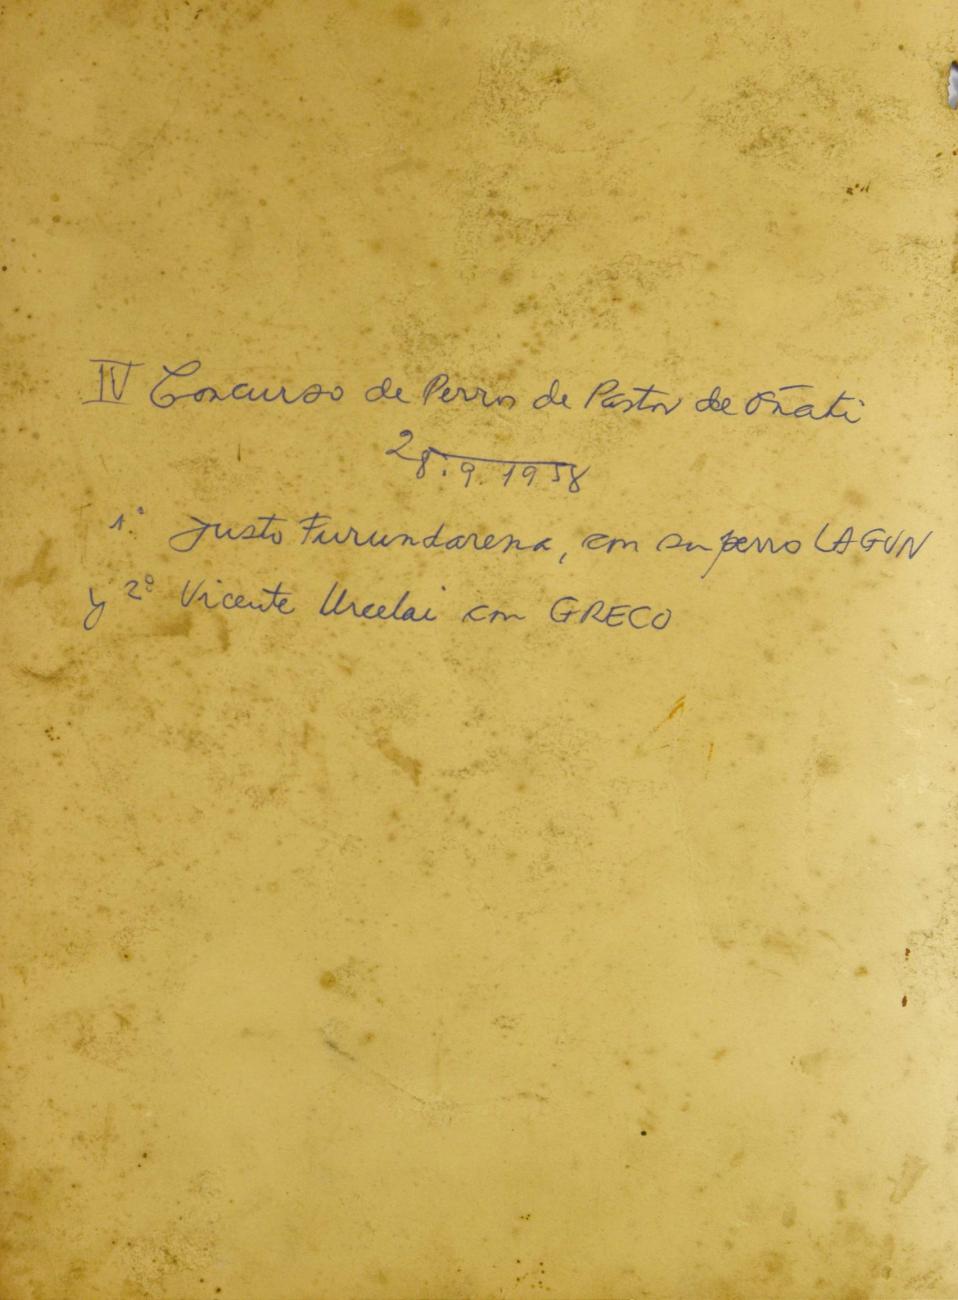 IV Concurso de Perros de Pastor de Oñati
28.9.1958
1º Justo Furundarena, con su perro LAGUN
y 2º Vicente Urcelai con GRECO